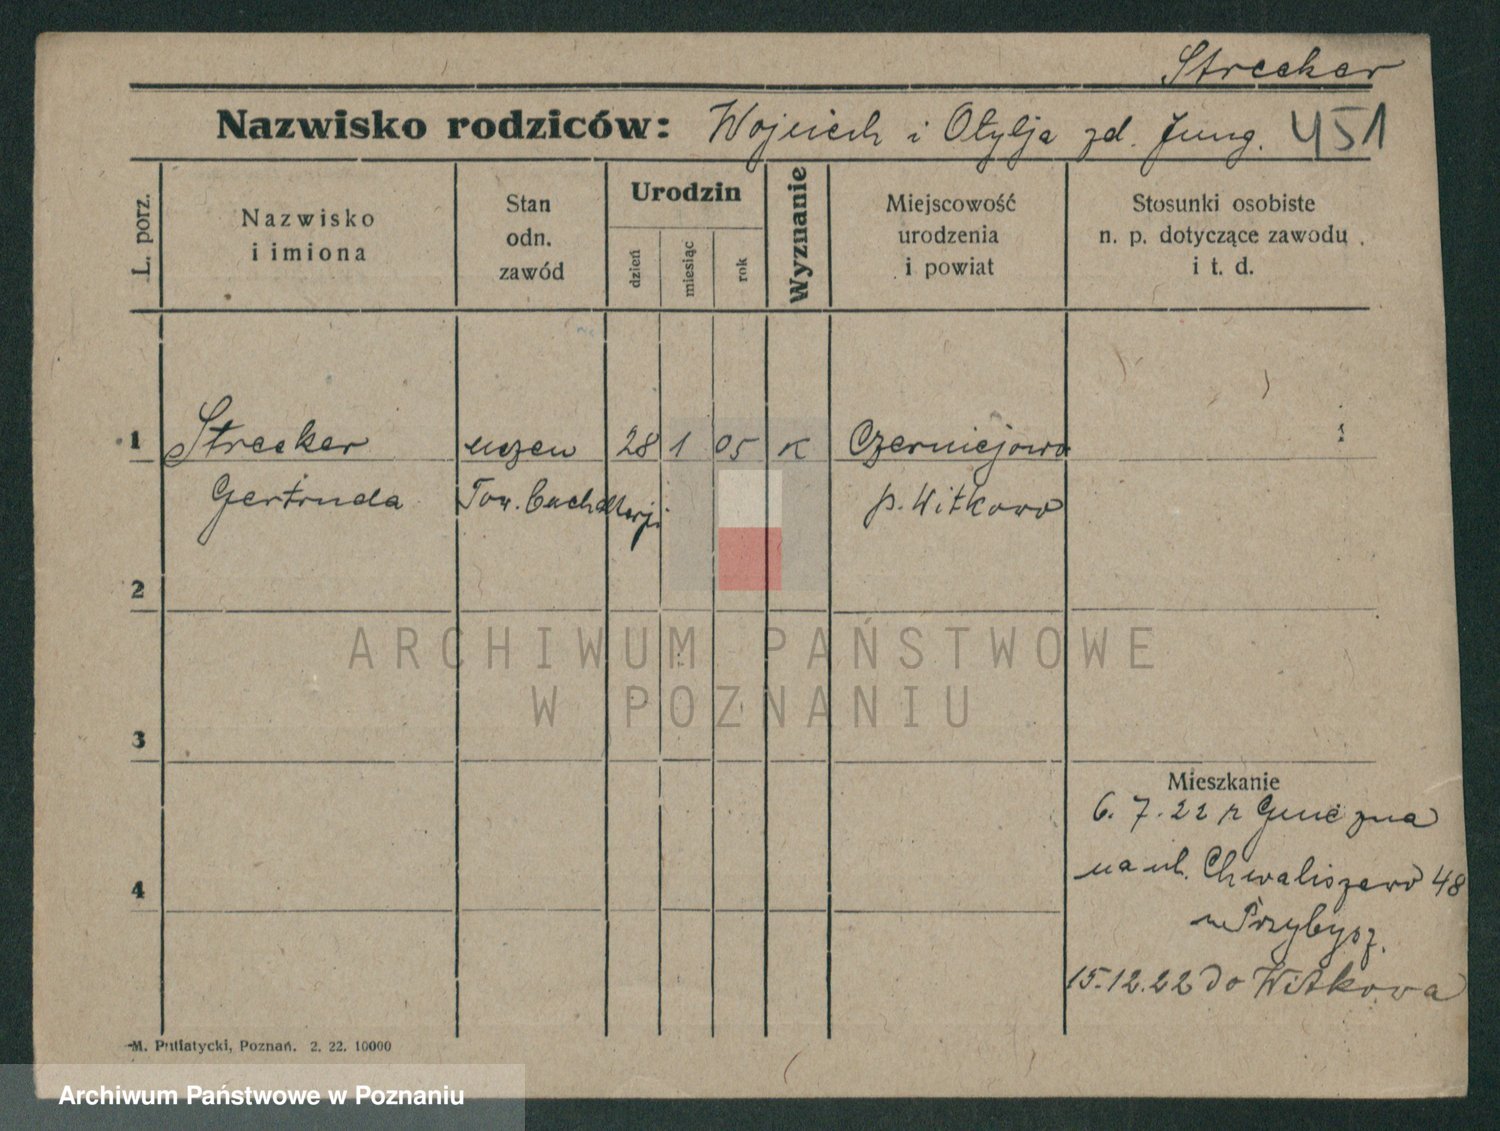 Strecker
Nazwisko rodziców: Wojciech i Otylja zd. Jung. 451
L. porz.
Nazwisko
i imiona
Stan
odn.
zawód
Urodzin
dzień
miesiąc
rok
Wyznanie
Miejscowość
urodzenia
i powiat
Stosunki osobiste
n. p. dotyczące zawodu
i t. d.
1 Strecker uczen 28 1 05 K Czerniejewo
Gertruda Tow. buchalterji p. Witkowo
2
3
4
Mieszkanie
6. 7. 22 z Gniezna
na ul. Chwaliszewo 48
u Przybysz.
15.12.22 do Witkowa
M. Putiatycki, Poznań. 2. 22. 10000
ARCHIWUM PAŃSTWOWE
W POZNANIU
Archiwum Państwowe w Poznaniu